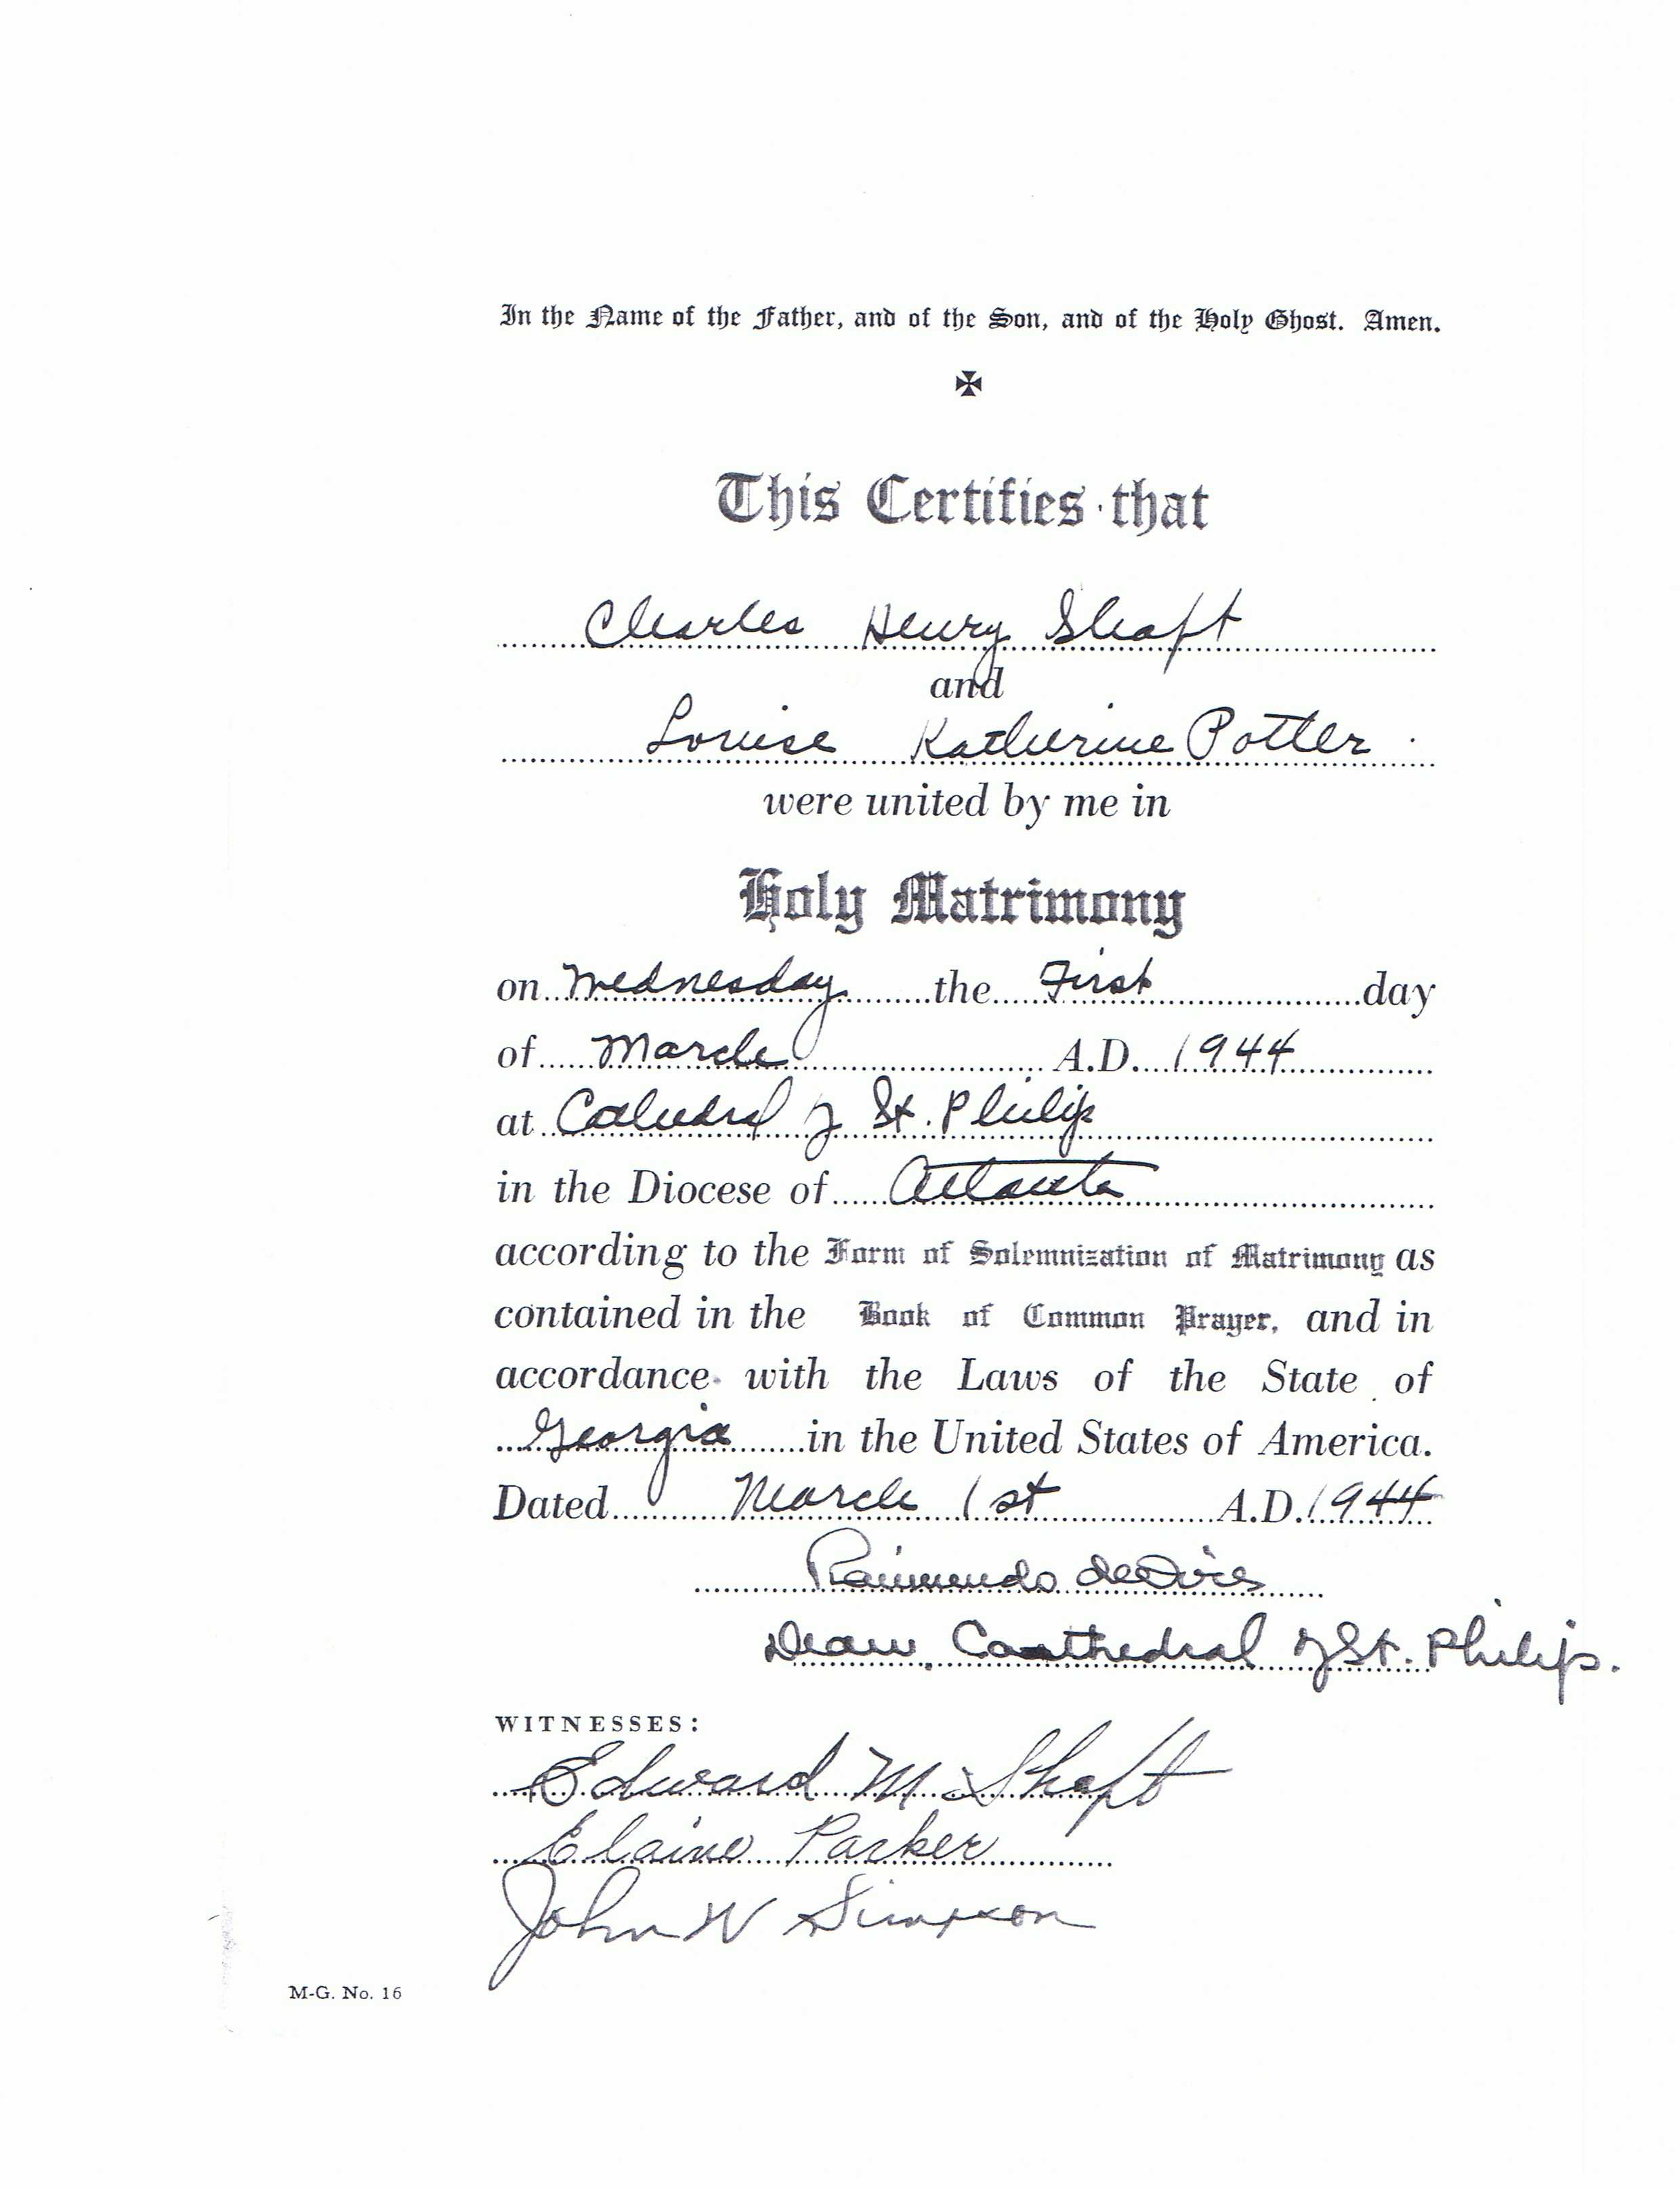 In the Name of the Father, and of the Son, and of the Holy Ghost. Amen.
This Certifies that
Charles Henry Shaft
and
Louise Katherine Potter
were united by me in
Holy Matrimony
on Wednesday the First day
of March A.D. 1944
at Cathedral of St. Philip
in the Diocese of Atlanta
according to the Form of Solemnization of Matrimony as
contained in the Book of Common Prayer, and in
accordance with the Laws of the State of
Georgia in the United States of America.
Dated March 1st A.D. 1944
Raimundo deOvies
Dean, Cathedral of St. Philip.
WITNESSES:
Edward M Shaft
Elaine Parker
John W Simpson
M-G. No. 16